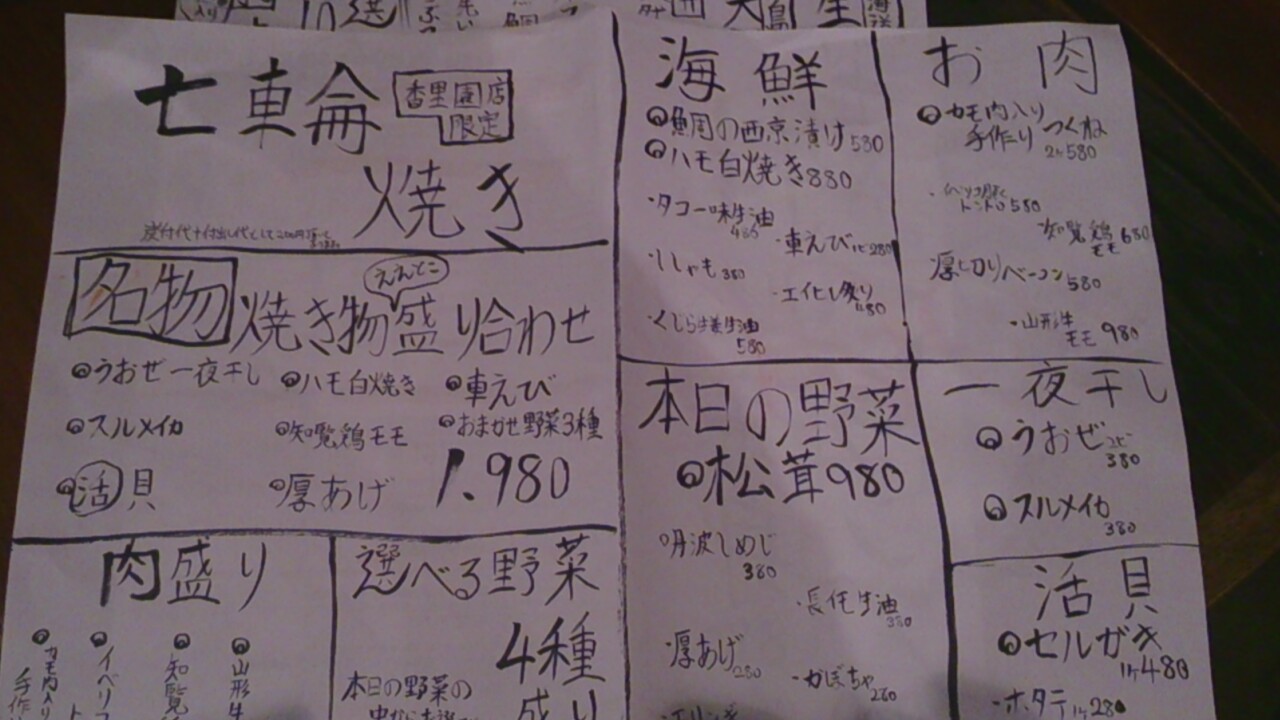 七車侖
香里園店
限定
焼き
名物 焼き物盛り合わせ
えんとこ
うおぜ一夜干し
ハモ白焼き
車えび
スルメイカ
知覧鶏モモ
おまかせ野菜3種
活貝
厚あげ
1.980
肉盛り
カモ肉入り
手作
イベリコ
ト
知覧
山形牛
選べる野菜
4種
盛り
本日の野菜の
海鮮
鯛の西京漬け580
ハモ白焼き880
タコ一味生油
480
車えび1ヒ280
ししゃも380
エイヒレ炙り
480
くじら生姜生油
580
お肉
カモ肉入り
手作りつくね
2ケ580
イベリコ豚
トントロ580
知覧鶏
モモ680
厚切りベーコン580
山形牛
モモ980
本日の野菜
松茸980
丹波しめじ
380
長芋生油
380
厚あげ280
かぼちゃ280
エリンギ
一夜干し
うおぜ
380
スルメイカ
380
活貝
セルガキ
1ケ480
ホタテ1ケ280